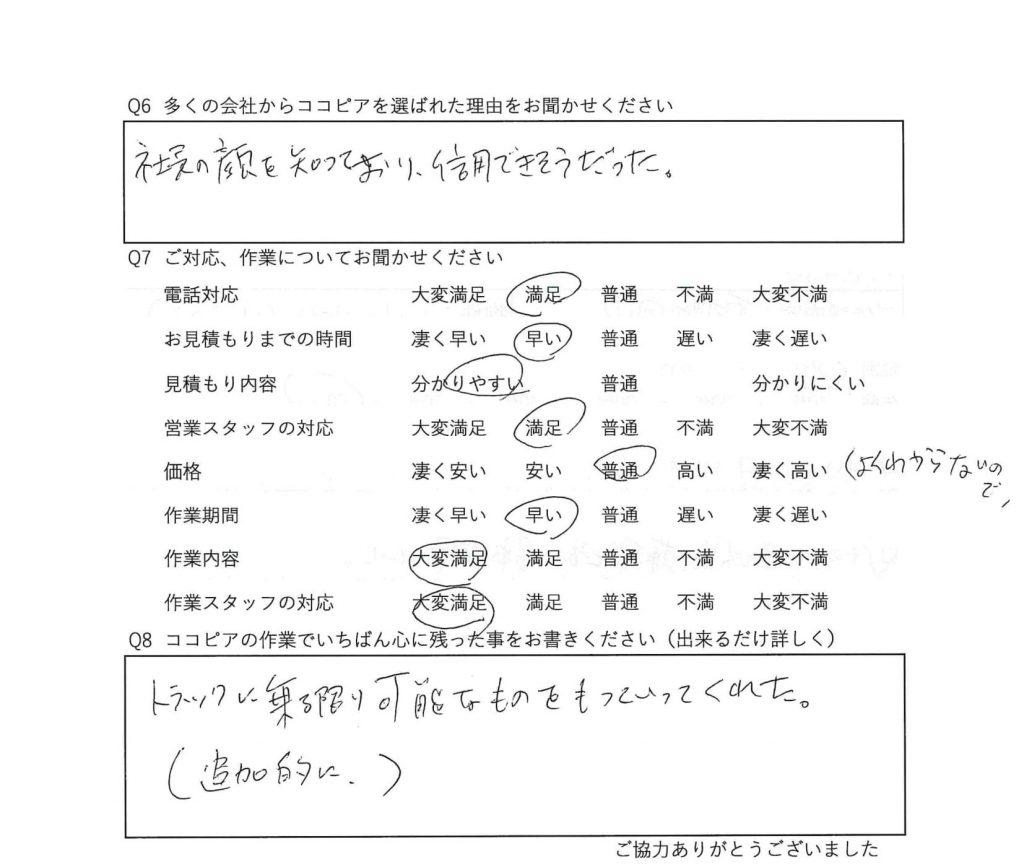 Q6 多くの会社からココピアを選ばれた理由をお聞かせください
社長の顔を知っており、信用できそうだった。
Q7 ご対応、作業についてお聞かせください
電話対応 大変満足 満足 普通 不満 大変不満
お見積もりまでの時間 凄く早い 早い 普通 遅い 凄く遅い
見積もり内容 分かりやすい 普通 分かりにくい
営業スタッフの対応 大変満足 満足 普通 不満 大変不満
価格 凄く安い 安い 普通 高い 凄く高い (よくわからないの
で,
作業期間 凄く早い 早い 普通 遅い 凄く遅い
作業内容 大変満足 満足 普通 不満 大変不満
作業スタッフの対応 大変満足 満足 普通 不満 大変不満
Q8 ココピアの作業でいちばん心に残った事をお書きください（出来るだけ詳しく）
トラックに乗る限り可能なものをもっていってくれた。
(追加的に、)
ご協力ありがとうございました